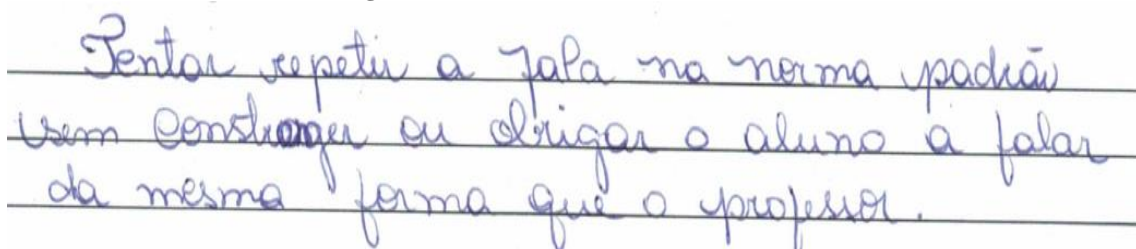 Tentar repetir a fala na norma padrão
sem constranger ou obrigar o aluno a falar
da mesma forma que o professor.